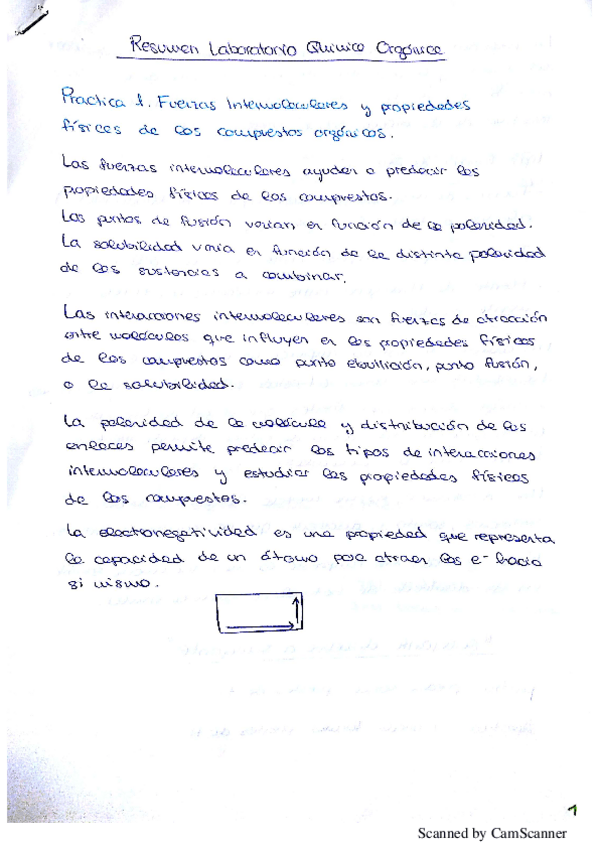 Resumen Laboratorio Química Orgánica
Practica 1. Fuerzas Intermoleculares y propiedades
físicas de los compuestos orgánicos.
Las fuerzas intermoleculares ayudan a predecir las
propiedades físicas de los compuestos.
Los puntos de fusión varían en función de la polaridad.
La solubilidad varía en función de la distinta polaridad
de las sustancias a combinar.
Las interacciones intermoleculares son fuerzas de atracción
entre moléculas que influyen en las propiedades físicas
de los compuestos como punto ebullición, punto fusión,
o la solubilidad.
La polaridad de la molécula y distribución de los
enlaces permite predecir los tipos de interacciones
intermoleculares y estudiar las propiedades físicas
de los compuestos.
La electronegatividad es una propiedad que representa
la capacidad de un átomo para atraer los e- hacia
si mismo.
1
Scanned by CamScanner